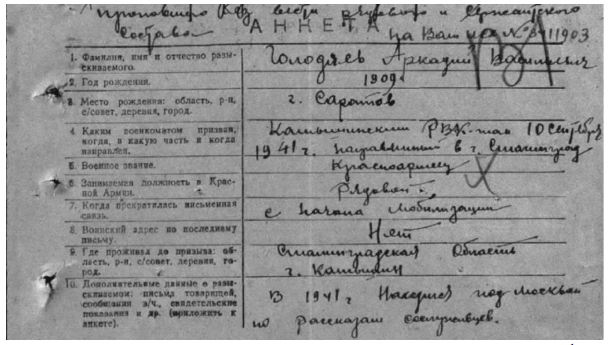 пропавшего без вести рядового и сержантского
состава АНКЕТА на Ваш № 11903
1. Фамилия, имя и отчество разы-
скиваемого.
Голодяев Аркадий Васильевич
2. Год рождения.
1909 г.
3. Место рождения: область, р-н,
с/совет, деревня, город.
г. Саратов
4. Каким военкоматом призван,
когда, в какую часть и когда
направлен.
Камышинским РВК-том 10 сентября
1941 г. направлен в г. Сталинград
5. Военное звание.
Красноармеец
6. Занимаемая должность в Крас-
ной Армии.
Рядовой
7. Когда прекратилась письменная
связь.
с начала мобилизации
8. Воинский адрес по последнему
письму.
Нет
9. Где проживал до призыва: об-
ласть, р-н, с/совет, деревня, го-
род.
Сталинградская Область
г. Камышин
10. Дополнительные данные о разы-
скиваемом: письма товарищей,
сообщения в/ч., свидетельские
показания и др. (приложить к
анкете).
В 1941 г под Москвой
по рассказам сослуживцев.